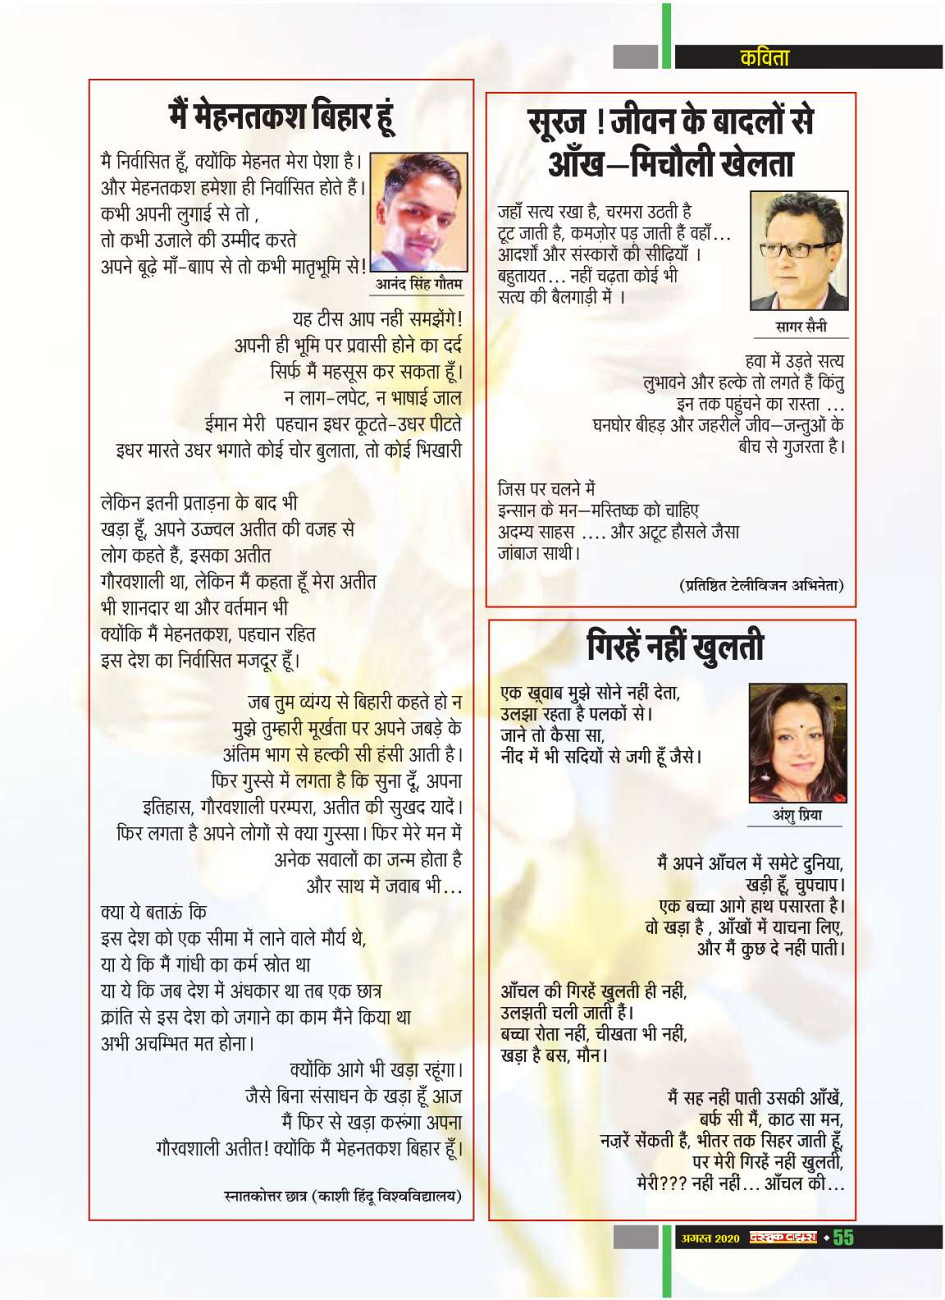 कविता
मैं मेहनतकश बिहार हूं
मै निर्वासित हूँ, क्योंकि मेहनत मेरा पेशा है।
और मेहनतकश हमेशा ही निर्वासित होते हैं।
कभी अपनी लुगाई से तो ,
तो कभी उजाले की उम्मीद करते
अपने बूढ़े माँ-बााप से तो कभी मातृभूमि से!
आनंद सिंह गौतम
यह टीस आप नहीं समझेंगे!
अपनी ही भूमि पर प्रवासी होने का दर्द
सिर्फ मैं महसूस कर सकता हूँ।
न लाग-लपेट, न भाषाई जाल
ईमान मेरी पहचान इधर कूटते-उधर पीटते
इधर मारते उधर भगाते कोई चोर बुलाता, तो कोई भिखारी
लेकिन इतनी प्रताड़ना के बाद भी
खड़ा हूँ, अपने उज्ज्वल अतीत की वजह से
लोग कहते हैं, इसका अतीत
गौरवशाली था, लेकिन मैं कहता हूँ मेरा अतीत
भी शानदार था और वर्तमान भी
क्योंकि मैं मेहनतकश, पहचान रहित
इस देश का निर्वासित मजदूर हूँ।
जब तुम व्यंग्य से बिहारी कहते हो न
मुझे तुम्हारी मूर्खता पर अपने जबड़े के
अंतिम भाग से हल्की सी हंसी आती है।
फिर गुस्से में लगता है कि सुना दूँ, अपना
इतिहास, गौरवशाली परम्परा, अतीत की सुखद यादें।
फिर लगता है अपने लोगों से क्या गुस्सा। फिर मेरे मन में
अनेक सवालों का जन्म होता है
और साथ में जवाब भी...
क्या ये बताऊं कि
इस देश को एक सीमा में लाने वाले मौर्य थे,
या ये कि मैं गांधी का कर्म स्रोत था
या ये कि जब देश में अंधकार था तब एक छात्र
क्रांति से इस देश को जगाने का काम मैंने किया था
अभी अचम्भित मत होना।
क्योंकि आगे भी खड़ा रहूंगा।
जैसे बिना संसाधन के खड़ा हूँ आज
मैं फिर से खड़ा करूंगा अपना
गौरवशाली अतीत! क्योंकि मैं मेहनतकश बिहार हूँ।
स्नातकोत्तर छात्र (काशी हिंदू विश्वविद्यालय)
सूरज ! जीवन के बादलों से
आँख–मिचौली खेलता
जहाँ सत्य रखा है, चरमरा उठती है
टूट जाती है, कमज़ोर पड़ जाती हैं वहाँ...
आदर्शों और संस्कारों की सीढ़ियाँ ।
बहुतायत... नहीं चढ़ता कोई भी
सत्य की बैलगाड़ी में ।
सागर सैनी
हवा में उड़ते सत्य
लुभावने और हल्के तो लगते हैं किंतु
इन तक पहुंचने का रास्ता ...
घनघोर बीहड़ और जहरीले जीव–जन्तुओं के
बीच से गुजरता है।
जिस पर चलने में
इन्सान के मन–मस्तिष्क को चाहिए
अदम्य साहस .... और अटूट हौसले जैसा
जांबाज साथी।
(प्रतिष्ठित टेलीविजन अभिनेता)
गिरहें नहीं खुलती
एक ख़्वाब मुझे सोने नहीं देता,
उलझा रहता है पलकों से।
जाने तो कैसा सा,
नींद में भी सदियों से जगी हूँ जैसे।
अंशु प्रिया
मैं अपने आँचल में समेटे दुनिया,
खड़ी हूँ, चुपचाप।
एक बच्चा आगे हाथ पसारता है।
वो खड़ा है , आँखों में याचना लिए,
और मैं कुछ दे नहीं पाती।
आँचल की गिरहें खुलती ही नहीं,
उलझती चली जाती हैं।
बच्चा रोता नहीं, चीखता भी नहीं,
खड़ा है बस, मौन।
मैं सह नहीं पाती उसकी आँखें,
बर्फ सी मैं, काठ सा मन,
नज़रें सेंकती हैं, भीतर तक सिहर जाती हूँ,
पर मेरी गिरहें नहीं खुलती,
मेरी??? नहीं नहीं... आँचल की...
अगस्त 2020 दस्तक टाइम्स 55